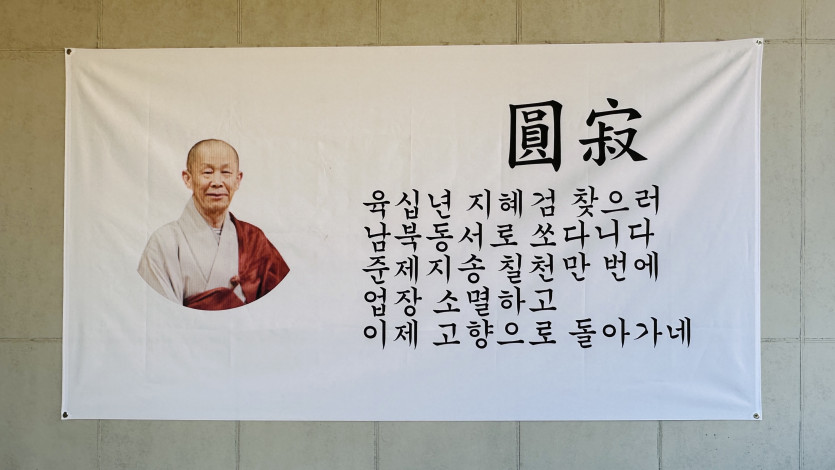 圓寂
육십년 지혜검 찾으러
남북동서로 쏘다니다
준제지송 칠천만 번에
업장 소멸하고
이제 고향으로 돌아가네